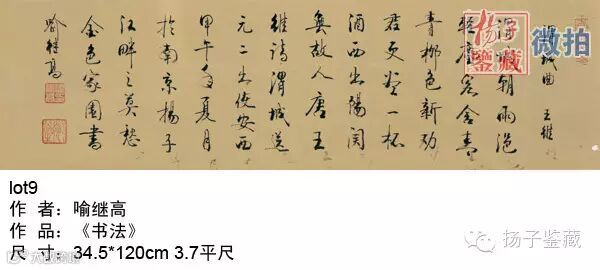 渭城曲 王維
渭城朝雨浥
輕塵客舍青
青柳色新勸
君更盡一杯
酒西出陽關
無故人唐王
維詩渭城送
元二出使安西
甲午年夏月
於南京揚子
江畔之莫愁
金色家園書
喻继高
扬子鉴藏
微拍
lot9
作 者：喻继高
作 品：《书法》
尺 寸：34.5*120cm 3.7平尺
扬子鉴藏